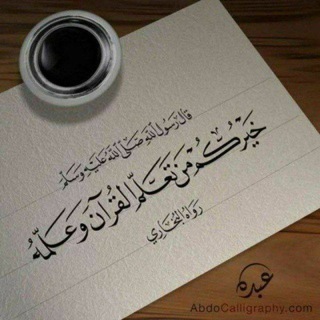 قال رسول الله صلى الله عليه وسلم
خيركم من تعلم القرآن وعلمه
رواه البخاري
عبده
AbdoCalligraphy.com